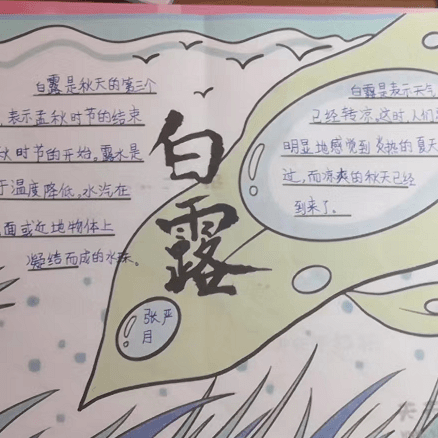 白露是秋天的第三个
,表示孟秋时节的结束
秋时节的开始。露水是
于温度降低,水汽在
面或近地物体上
凝结而成的水珠。
白露
白露是表示天气
已经转凉,这时,人们
明显地感觉到炎热的夏天
过,而凉爽的秋天已经
到来了。
张严
月